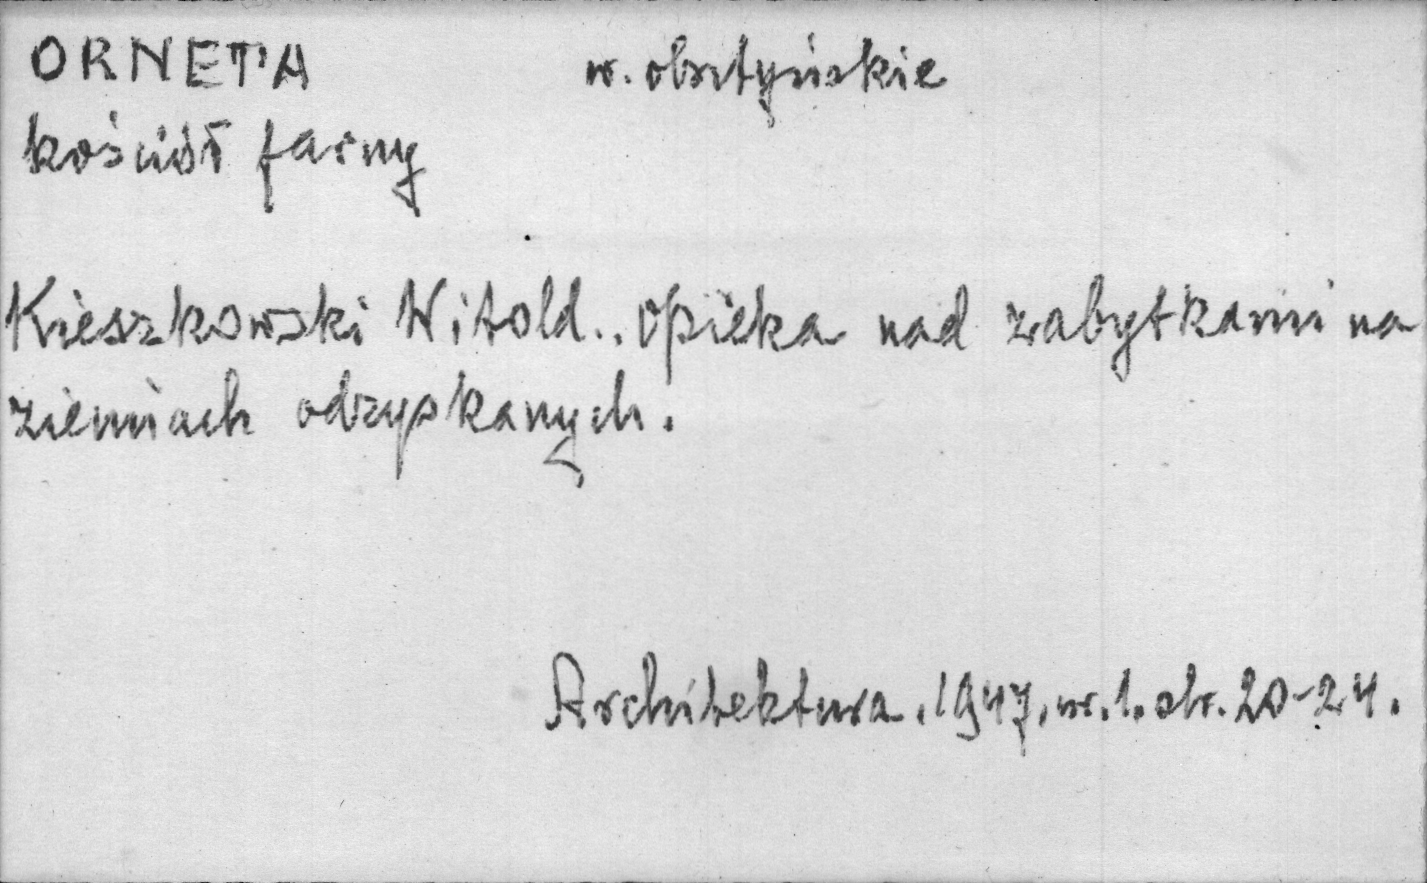 ORNETA w. olsztyńskie
kościół farny
Kieszkowski Witold.. Opieka nad zabytkami na
ziemiach odzyskanych.
Architektura. 1947. nr. 1. str. 20-24.